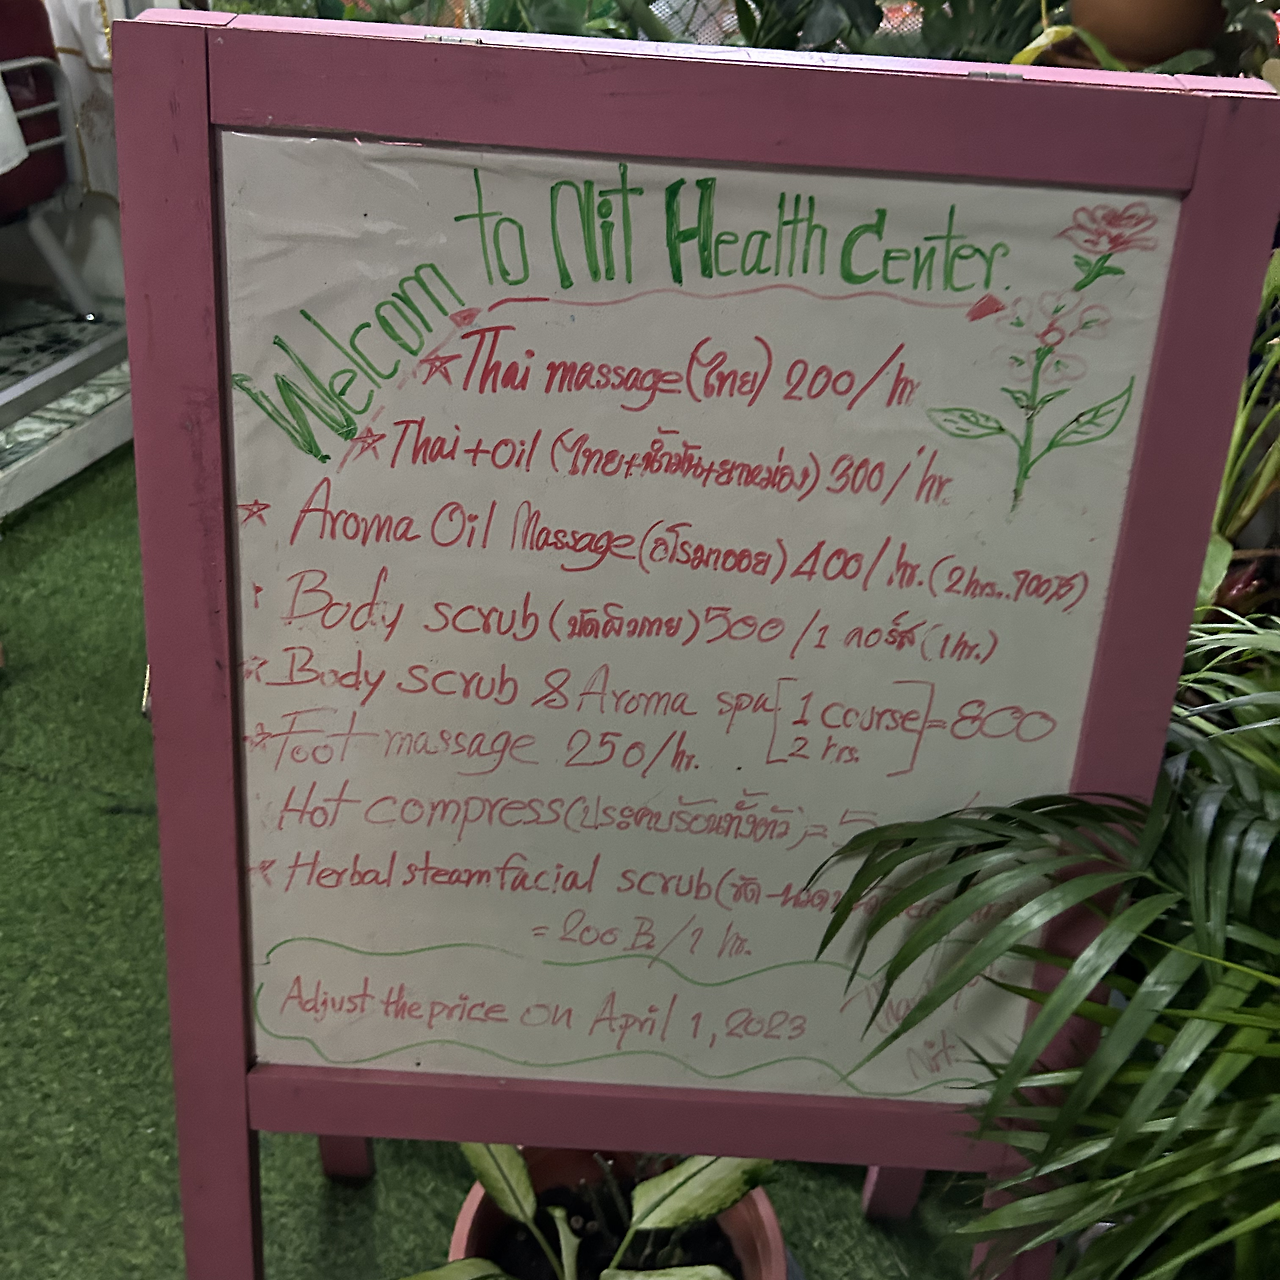 Welcom to Nit Health Center.
Thai massage (ไทย) 200/hr
Thai + oil (ไทย+น้ำมัน+ยาหม่อง) 300/hr.
Aroma Oil Massage (อโรมาออย) 400/hr. (2hrs..700฿)
Body scrub (ขัดผิวกาย) 500/1 คอร์ส (1hr.)
Body scrub & Aroma spa [1 course 2 hrs.] = 800
Foot massage 250/hr.
Hot compress (ประคบร้อนทั้งตัว) = 5
Herbal steam facial scrub (ขัด-นวด
= 200 B/1 hr.
Adjust the price on April 1, 2023
Nit.